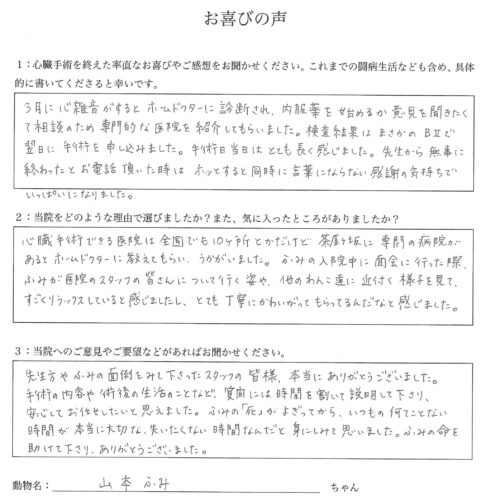 お喜びの声
1：心臓手術を終えた率直なお喜びやご感想をお聞かせください。これまでの闘病生活なども含め、具体
的に書いてくださると幸いです。
3月に心雑音がすると ホームドクターに 診断され、内服薬を始めるか 意見を聞きたく
て相談のため 専門的な医院を紹介してもらいました。検査結果は まさかの B2で
翌日に 手術を申し込みました。手術日当日は とても長く感じました。先生から 無事に
終わったと お電話 頂いた時は ホッとすると同時に 言葉にならない 感謝の気持ちで
いっぱいになりました。
2：当院をどのような理由で選びましたか？また、気に入ったところがありましたか？
心臓手術できる医院は 全国でも 10ヶ所 とかだけど 茶屋ヶ坂に 専門の病院が
あると ホームドクターに 教えてもらい、うかがいました。 ふみの入院中に 面会に行った際、
ふみが医院のスタッフの皆さんについて行く姿や、他のわんこ達に近付く様子を見て、
すごくリラックスしていると感じましたし、とても 丁寧にかわいがってもらってるんだなと感じました。
3：当院へのご意見やご要望などがあればお聞かせください。
先生方や ふみの面倒をみて下さったスタッフの 皆様、本当に ありがとうございました。
手術の内容や 術後の生活のことなど、質問には 時間を割いて 説明して下さり、
安心してお任せしたいと思えました。ふみの「死」が よぎってから、いつもの 何てことない
時間が 本当に大切な、失いたくない 時間なんだと 身にしみて思いました。ふみの命を
助けて下さり、ありがとうございました。
動物名： 山本 ふみ ちゃん